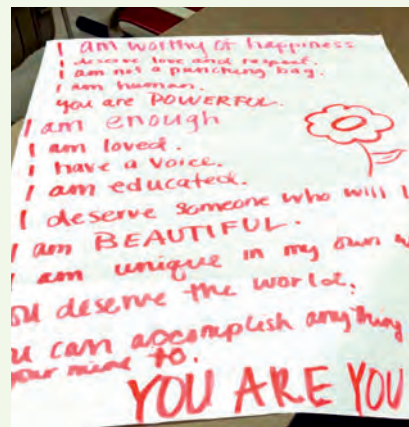 I am worthy of happiness
I deserve love and respect.
I am not a punching bag.
I am human.
you are POWERFUL.
I am enough
I am loved.
I have a voice.
I am educated.
I deserve someone who will
I am BEAUTIFUL.
I am unique in my own
ou deserve the world.
u can accomplish anything
your mind to.
YOU ARE YOU